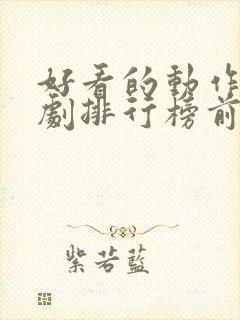 好看的動作
劇排行榜前
紫若藍